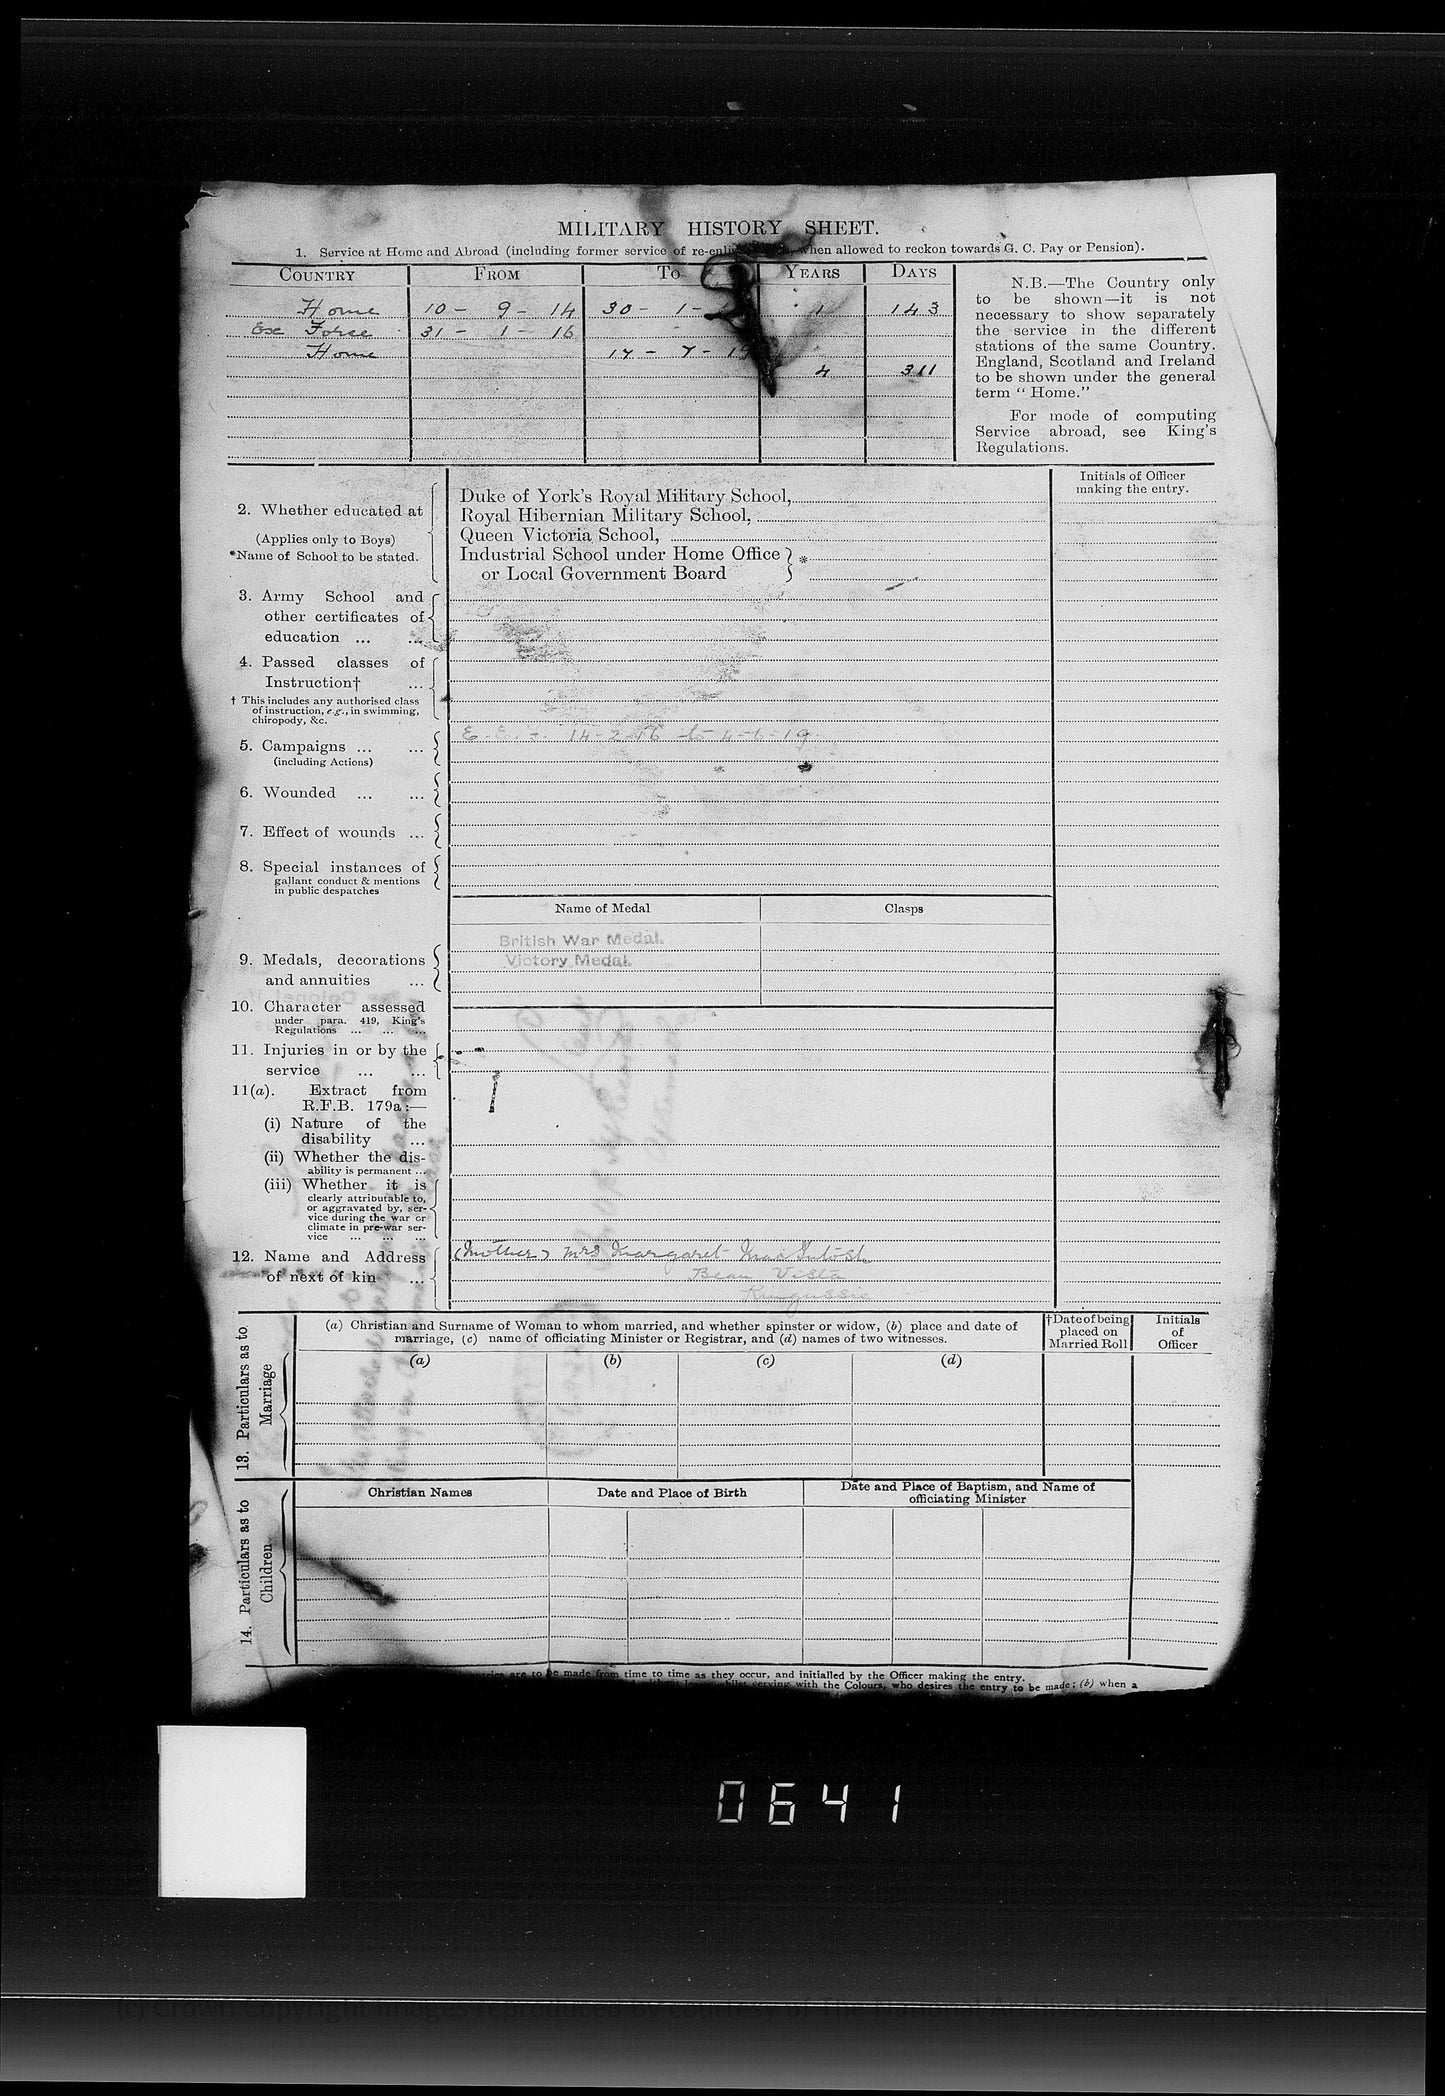 MILITARY HISTORY SHEET.
1. Service at Home and Abroad (including former service of when allowed to reckon towards G. C. Pay or Pension).
COUNTRY FROM TO YEARS DAYS
Home 10 - 9 - 14 30 - 1 - 1 143
Exe Force 31 - 1 - 16
Home 17 - 7 - 19
4 311
N.B.—The Country only
to be shown—it is not
necessary to show separately
the service in the different
stations of the same Country.
England, Scotland and Ireland
to be shown under the general
term “ Home.”
For mode of computing
Service abroad, see King's
Regulations.
Initials of Officer
making the entry.
2. Whether educated at
(Applies only to Boys)
*Name of School to be stated.
Duke of York's Royal Military School,
Royal Hibernian Military School,
Queen Victoria School,
Industrial School under Home Office } *
or Local Government Board
3. Army School and
other certificates of
education ... ...
4. Passed classes of
Instruction† ...
† This includes any authorised class
of instruction, e.g., in swimming,
chiropody, &c.
5. Campaigns ... ...
(including Actions)
14-2-16 to 4-6-19
6. Wounded ... ...
7. Effect of wounds ...
8. Special instances of
gallant conduct & mentions
in public despatches
Name of Medal Clasps
British War Medal.
Victory Medal.
9. Medals, decorations
and annuities ...
10. Character assessed
under para. 419, King's
Regulations ... ... ...
11. Injuries in or by the
service ... ...
11(a). Extract from
R.F.B. 179a:—
(i) Nature of the
disability ...
(ii) Whether the dis-
ability is permanent ...
(iii) Whether it is
clearly attributable to,
or aggravated by, ser-
vice during the war or
climate in pre-war ser-
vice ... ... ...
12. Name and Address
of next of kin ...
(Mother) Mrs Margaret MacIntosh
Beau Vista
Kingussie
13. Particulars as to
Marriage
(a) Christian and Surname of Woman to whom married, and whether spinster or widow, (b) place and date of
marriage, (c) name of officiating Minister or Registrar, and (d) names of two witnesses.
†Date of being
placed on
Married Roll
Initials
of
Officer
(a) (b) (c) (d)
14. Particulars as to
Children
Christian Names Date and Place of Birth Date and Place of Baptism, and Name of
officiating Minister
are to be made from time to time as they occur, and initialled by the Officer making the entry.
serving with the Colours, who desires the entry to be made; (b) when a
0641